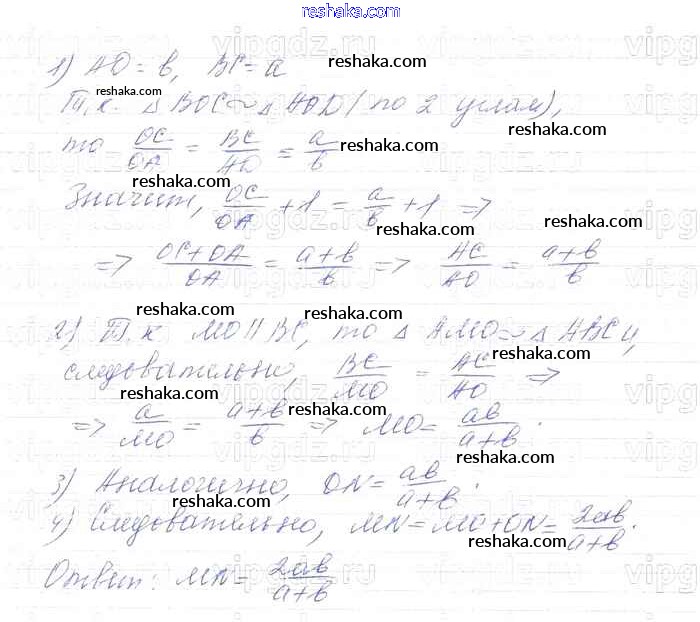 reshaka.com
1) AO = b, BC = a
reshaka.com
Т.к. △ BOC ~ △ AOD (по 2 углам),
reshaka.com
reshaka.com
то OC/OA = BC/AO = a/b
reshaka.com
reshaka.com
Значит, OC/OA + 1 = a/b + 1 =>
reshaka.com
=> OC+OA/OA = a+b/b => AC/AO = a+b/b
reshaka.com
reshaka.com
2) Т.к MO || BC, то △ AMO ~ △ ABC и,
reshaka.com
следовательно, BC/MO = AC/AO =>
reshaka.com
reshaka.com
=> a/MO = a+b/b => MO = ab/a+b.
reshaka.com
3) Аналогично, ON = ab/a+b.
reshaka.com
4) Следовательно, MN = MO + ON = 2ab/a+b.
reshaka.com
Ответ: MN = 2ab/a+b
reshaka.com